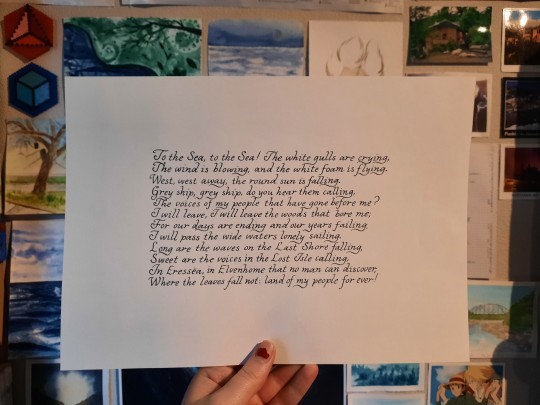 To the Sea, to the Sea! The white gulls are crying,
The wind is blowing, and the white foam is flying.
West, west away, the round sun is falling.
Grey ship, grey ship, do you hear them calling,
The voices of my people that have gone before me?
I will leave, I will leave the woods that bore me;
For our days are ending and our years failing.
I will pass the wide waters lonely sailing.
Long are the waves on the Last Shore falling,
Sweet are the voices in the Lost Isle calling,
In Eressëa, in Elvenhome that no man can discover,
Where the leaves fall not: land of my people for ever!